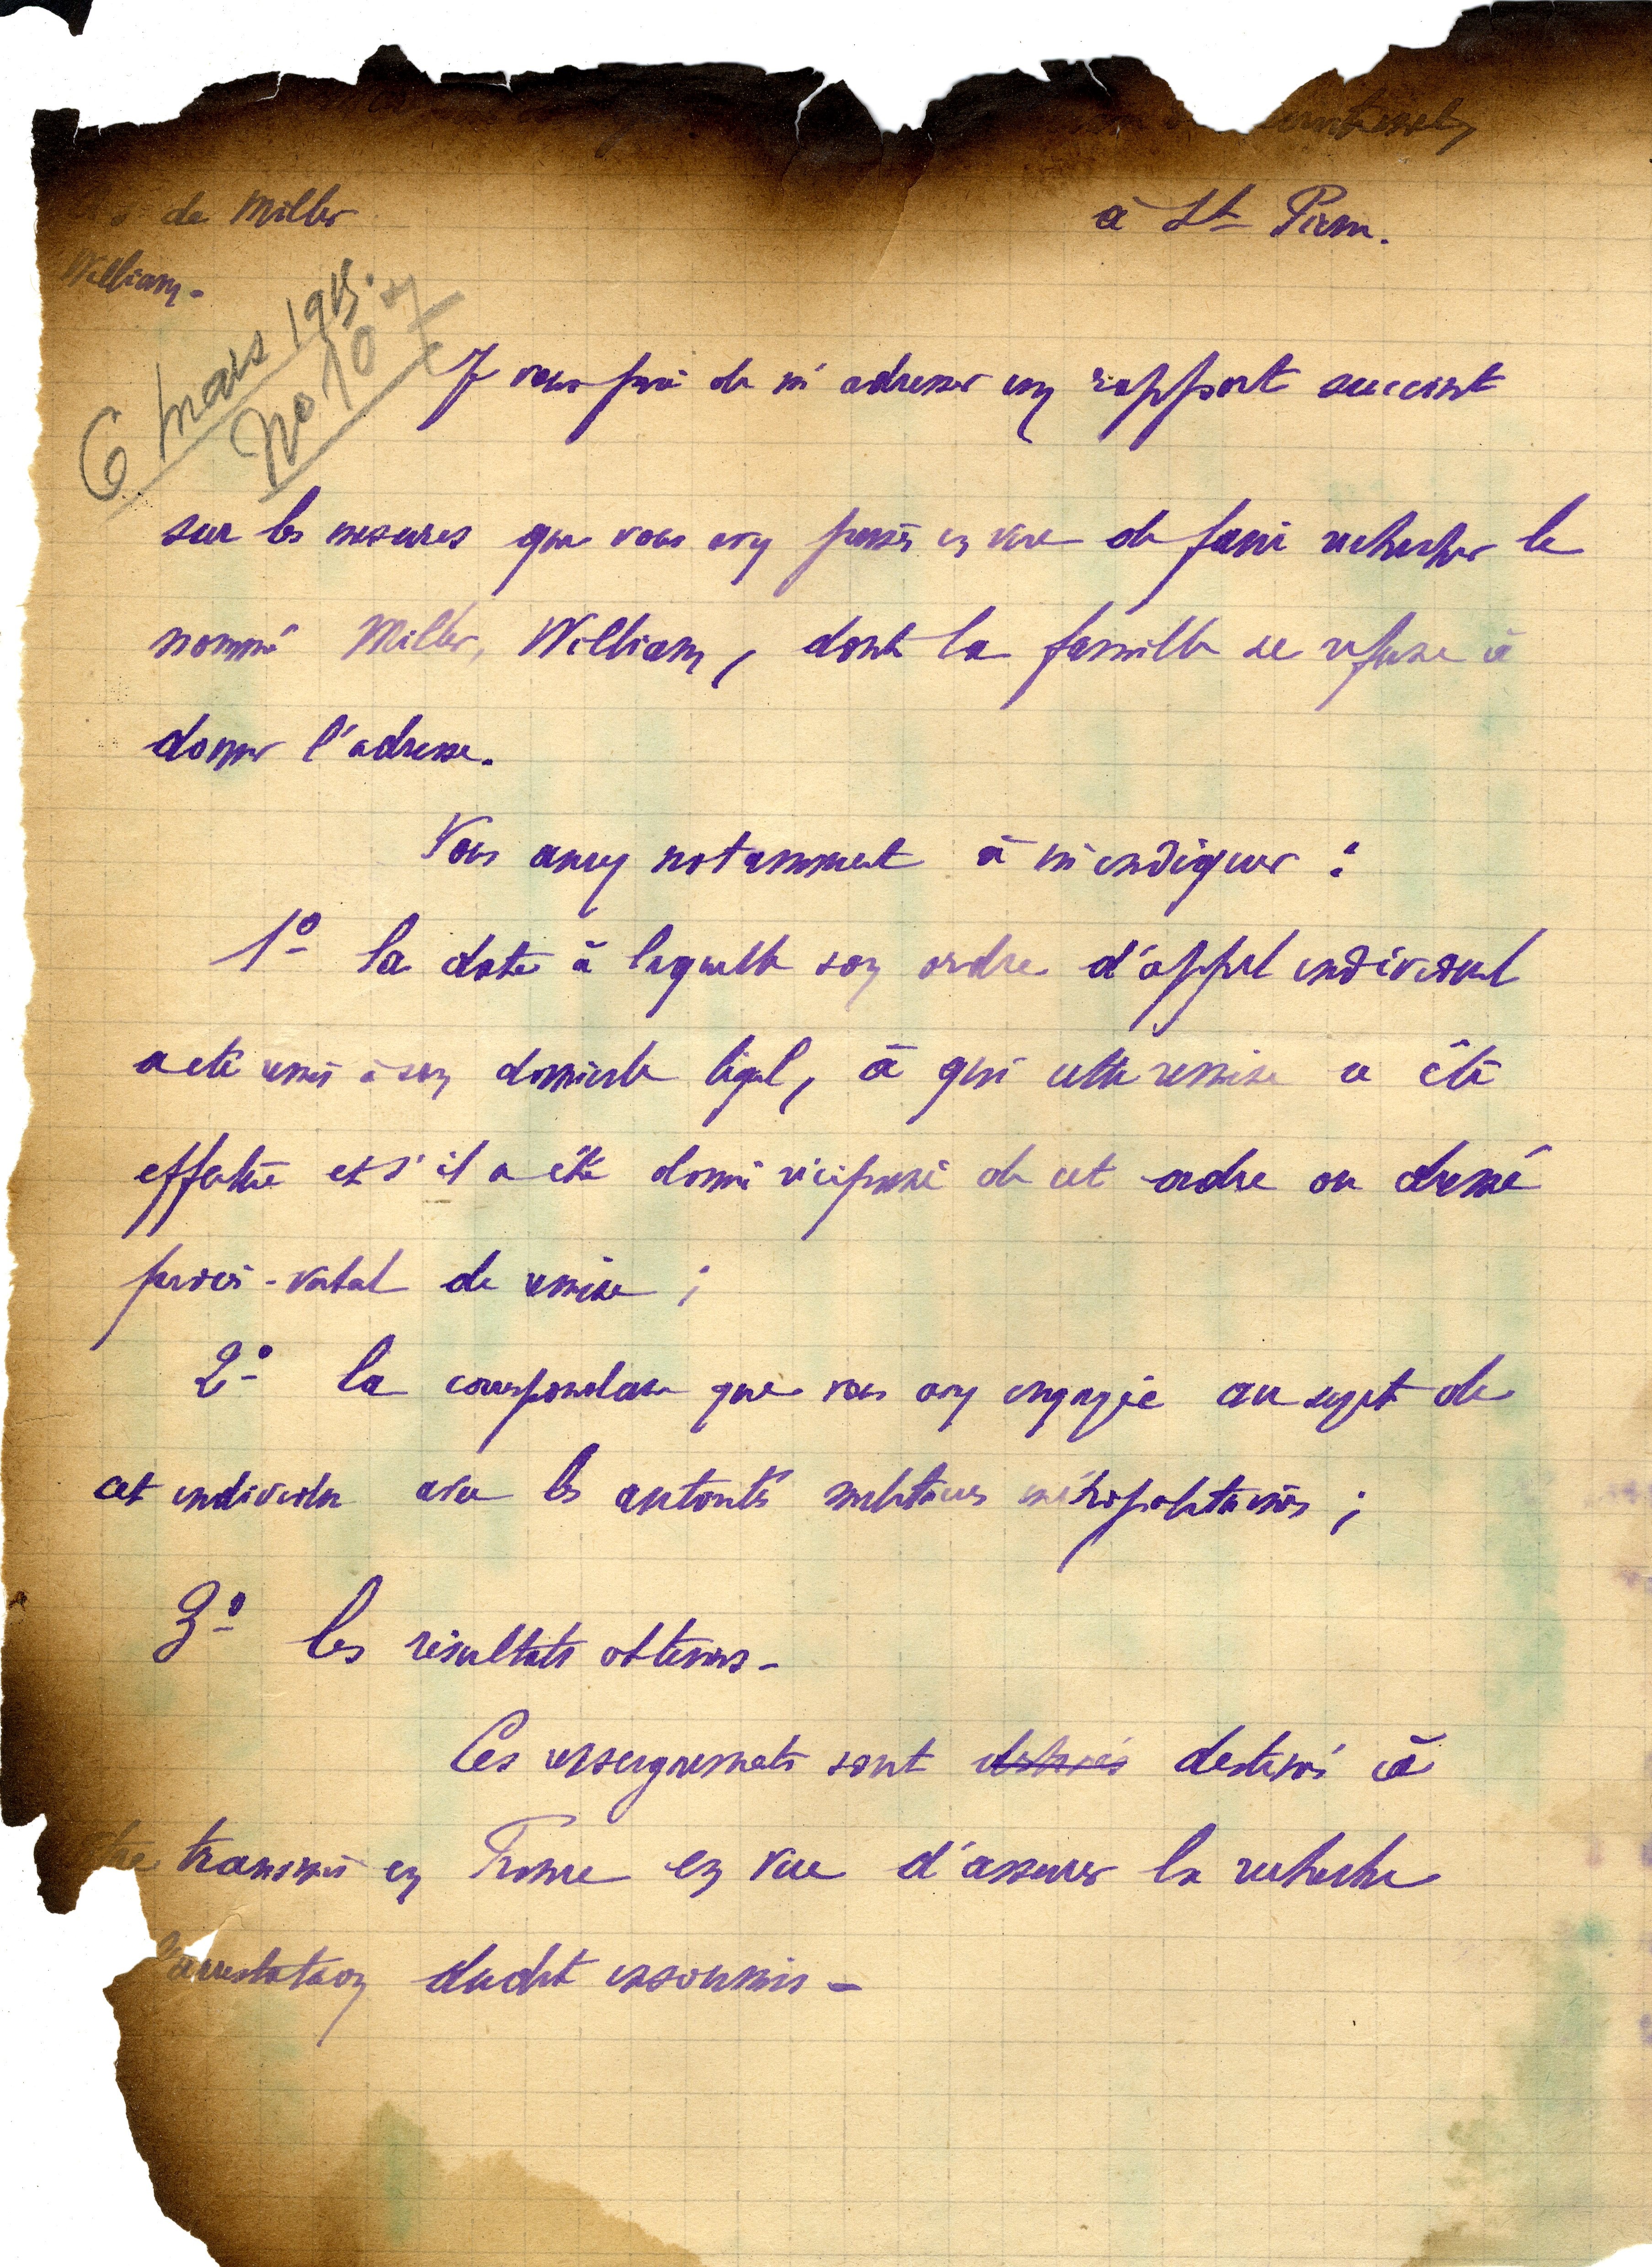 de Miller
à St Pierre.
William.
6 mars 1915.
No 107
Je vous prie de m'adresser un rapport succint
sur les mesures que vous avez prises en vue de faire rechercher le
nommé Miller, William, dont la famille se refuse à
donner l'adresse.
Vous aurez notamment à m'indiquer :
1º la date à laquelle son ordre d'appel individuel
a été remis à son domicile légal, à qui cette remise a été
effectuée et s'il a été donné récépissé de cet ordre ou dressé
procès-verbal de remise ;
2º la correspondance que vous avez engagée au sujet de
cet individu avec les autorités militaires métropolitaines ;
3º les résultats obtenus -
Ces renseignements sont destinés destinés à
être transmis en France en vue d'assurer la recherche
l'arrestation dudit insoumis -